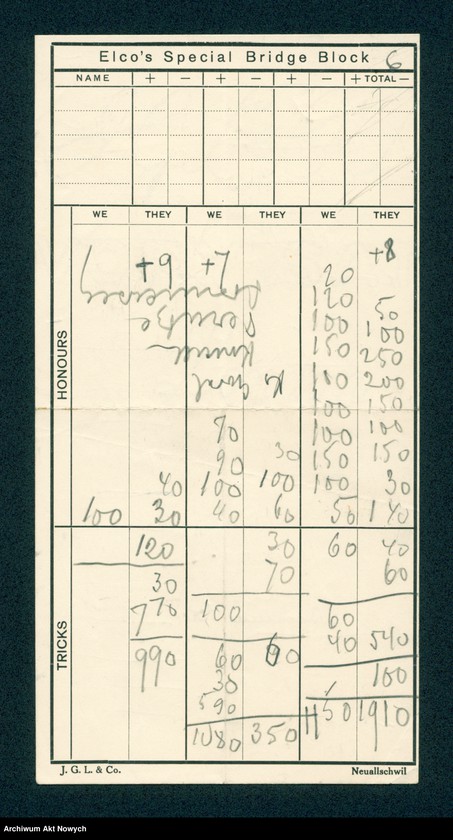 Elco's Special Bridge Block 6
NAME + − + − + − + TOTAL −
WE THEY WE THEY WE THEY
HONOURS
+9 +7 +8
20
120 50
100 100
150 250
100 200
100 150
70 100 100
90 30 150 150
40 100 100 100 30
100 30 40 60 50 140
TRICKS
120 30 60 40
30 70 60
770 100 60
40 540
990 60 60 100
30
590
1080 350 1150 1910
J. G. L. & Co. Neuallschwil
Archiwum Akt Nowych